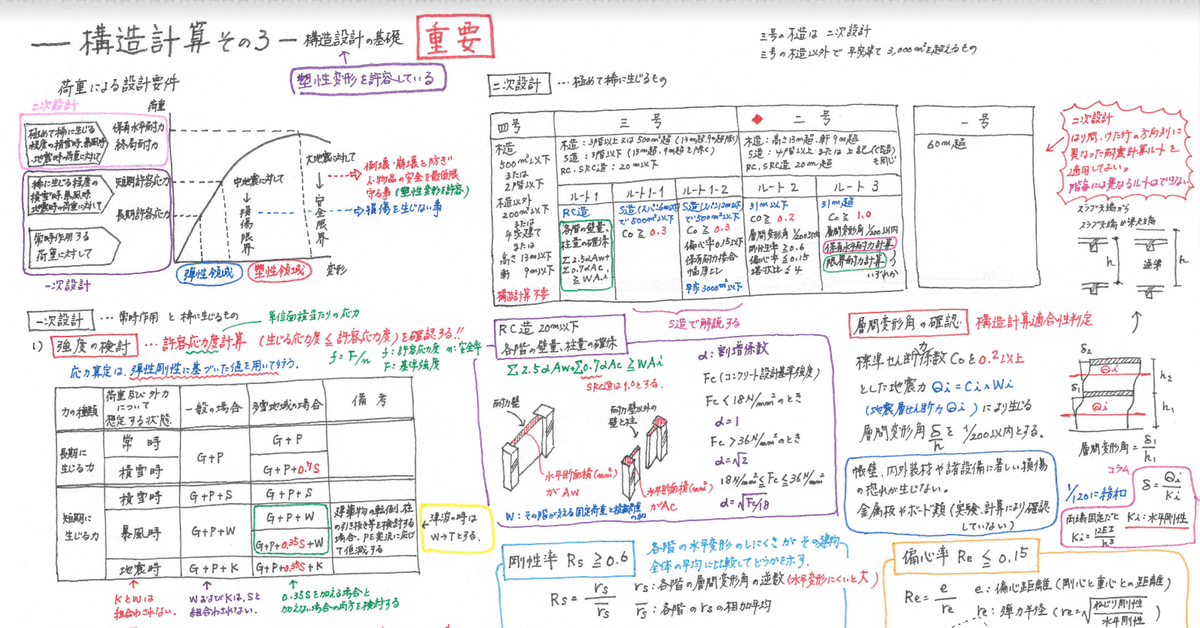 構造計算その3 - 構造設計の基礎
重要
塑性変形を許容している
三号の木造は 二次設計
三号の木造以外で平家建て 3,000m²を超えるもの
荷重による設計要件
二次設計
荷重
極めて稀に生じる
程度の積雪時、暴風時
、地震時の荷重に対して
保有水平耐力
終局耐力
稀に生じる程度の
積雪時、暴風時
地震時の荷重に対して
短期許容応力
長期許容応力
常時作用する
荷重に対して
一次設計
中地震に対して
損傷限界
大地震に対して
安全限界
倒壊・崩壊を防ぎ
人・物品の安全を最低限
守る事(塑性変形を許容)
損傷を生じない事
弾性領域
塑性領域
変形
二次設計 …極めて稀に生じるもの
四号
木造
500m²以下
または
2階以下
木造以外
200m²以下
または
平家建て
または
高さ13m以下
軒 9m以下
構造計算不要
三号
木造:3階以上又は500m²超(13m超,9m超除く)
S造:3階以下(13m超,9m超を除く)
RC、SRC造:20m以下
ルート1
RC造
各階の壁量、
柱量の確保
Σ2.5αAw+
Σ0.7αAc
≧WAi
ルート1-1
で500m²以下
Co≧0.3
ルート1-2
で500m²以下
Co≧0.3
偏心率0.15以下
保有耐力接合
幅厚比
平家3000m²以下
二号
木造:高さ13m超、軒9m超
RC、SRC造 20m超
ルート2
31m以下
Co≧0.2
層間変形角1/200以内
剛性率≧0.6
偏心率≦0.15
塔状比≦4
ルート3
31m超
Co≧1.0
層間変形角1/200以内
保有水平耐力計算
限界耐力計算
いずれか
一号
60m超
二次設計
はり間、けた行の方向別に
異なった耐震計算ルートを
適用してよい。
階毎には異なるルートはできない。
スラブ天端から
スラブ天端が
h
h
S造で解説する
一次設計 …常時作用と稀に生じるもの
単位面積当たりの応力
1) 強度の検討 …許容応力度計算(生じる応力度≦許容応力度)を確認する!!
応力算定は、弾性剛性に基づいた値を用いて行う。
f=F/n f:許容応力度 n:安全率
F:基準強度
力の種類
荷重及び外力
について
想定する状態
一般の場合
多雪地域の場合
備考
長期に
生じる力
常時
G+P
G+P
積雪時
G+P+0.7S
短期に
生じる力
積雪時
G+P+S
G+P+S
暴風時
G+P+W
G+P+W
G+P+0.35S+W
建築物の転倒、柱
の引抜き等を検討する
場合、Pを実況に応じ
て低減する
地震時
G+P+K
G+P+0.35S+K
津波の時は
W→Tとする。
KとWは
組合わされない。
WおよびKは、Sと
組合わされない。
0.35Sを加える場合と
加えない場合の両方を検討する
RC造 20m以下
各階の壁量、柱量の確保
Σ2.5αAw+Σ0.7αAc≧WAi
SRC造は1.0とする。
耐力壁
水平断面積(mm²)
がAw
耐力壁以外の
壁と柱
水平断面積(mm²)
がAc
W:その階が支える固定荷重と積載荷重の和
α:割増係数
Fc(コンクリート設計基準強度)
Fc<18N/mm²のとき
α=1
Fc>36N/mm²のとき
α=√2
18N/mm²≦Fc≦36N/mm²
α=√Fc/18
層間変形角の確認
構造計算適合性判定
標準せん断力係数Coを0.2以上
とした地震力Qi=Ci×Wi
(地震層せん断力Qi)により生じる
層間変形角δ/hを1/200以内とする。
帳壁、内外装材や諸設備に著しい損傷
の恐れが生じない。
金属板やボード類(実験、計算により確認
していない)
1/120に緩和
δ2
δ1
Qi
Qi
h2
h1
層間変形角=δ1/h1
コラム
δ=Qi/Ki
両端固定だと
Ki=12EI/h³
Ki:水平剛性
剛性率 Rs≧0.6
各階の水平変形のしにくさがその建物
全体の平均に比較してどうかを示す。
Rs=rs/r̄s
rs:各階の層間変形角の逆数(水平変形しにくいと大)
r̄s:各階のrsの相加平均
偏心率 Re≦0.15
Re=e/re
e:偏心距離(剛心と重心との距離)
re:弾力半径(re=√ねじり剛性/水平剛性)